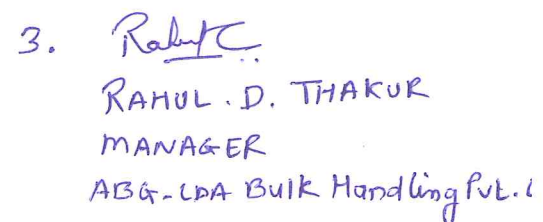 3. Rahul
RAHUL . D. THAKUR
MANAGER
ABG-LDA Bulk Handling Pvt. L